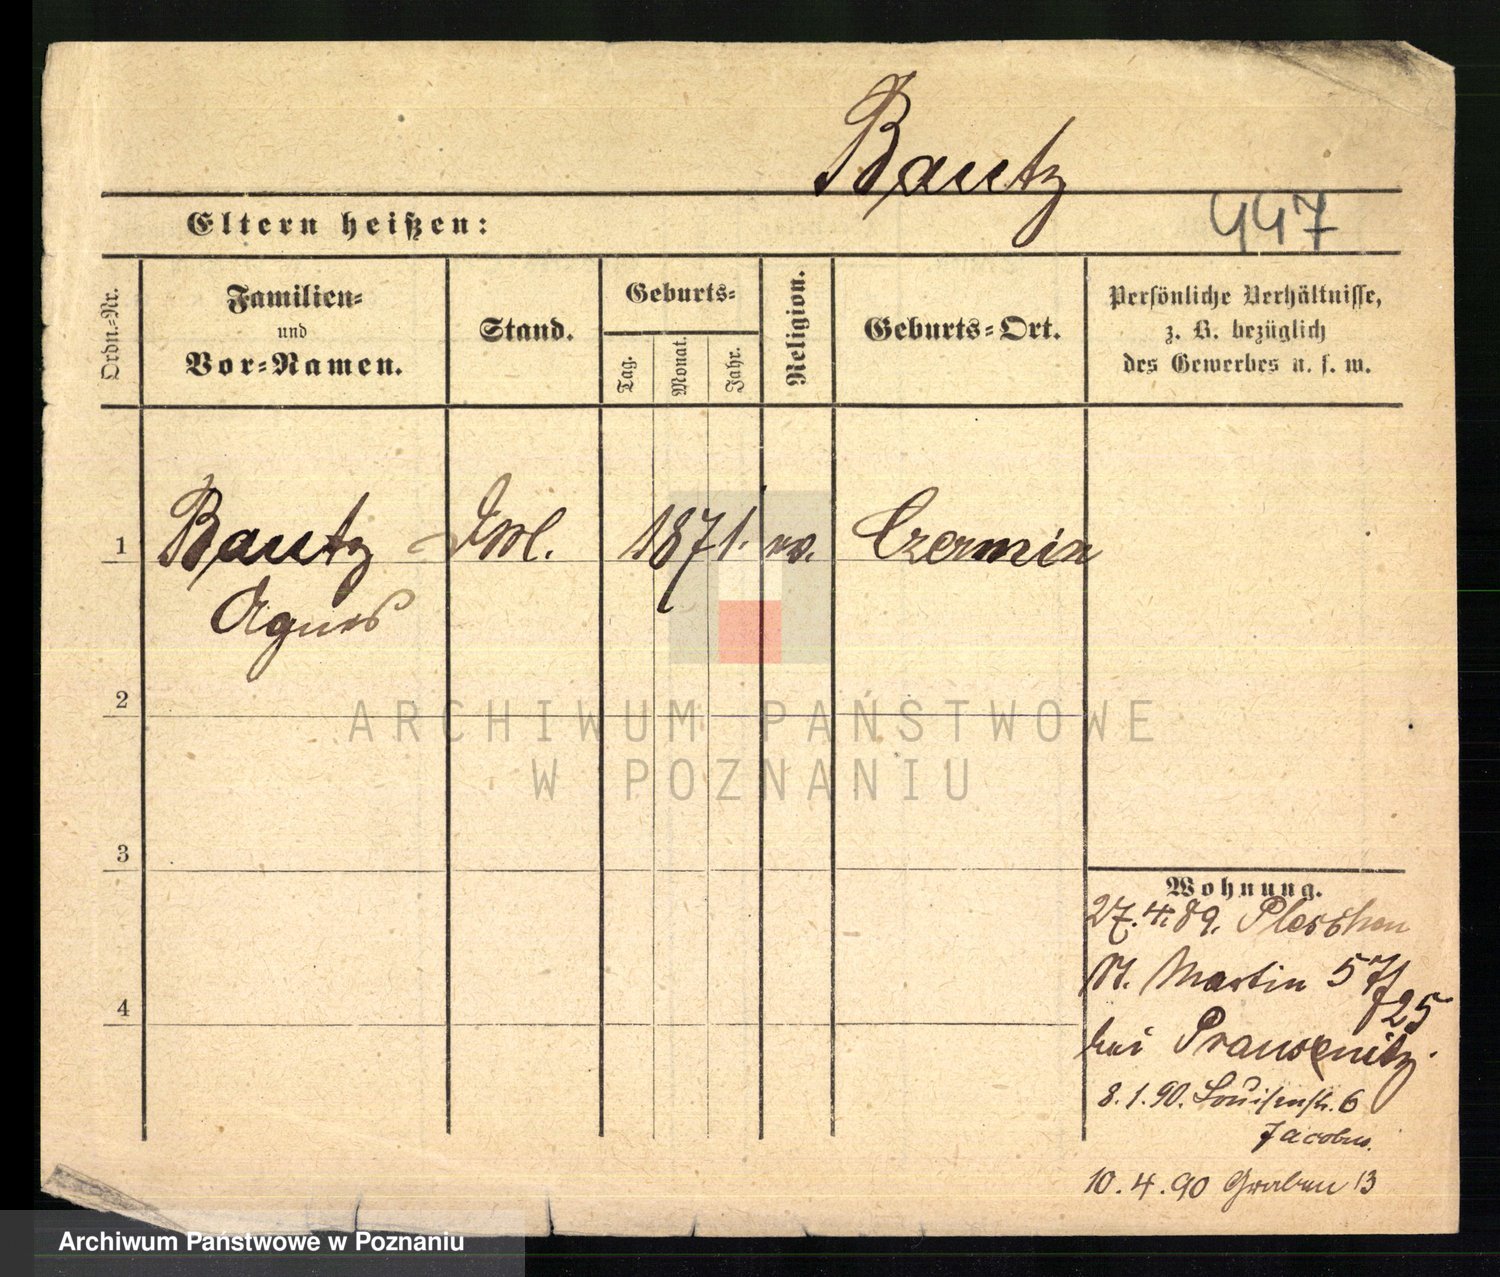 Bautz
Eltern heißen:
447
Ordn.-Nr.
Familien-
und
Vor-Namen.
Stand.
Geburts-
Tag.
Monat.
Jahr.
Religion.
Geburts-Ort.
Persönliche Verhältnisse,
z. B. bezüglich
des Gewerbes u. s. w.
1
Bautz
1871.
ev.
Czermin
Agnes
2
3
4
Wohnung.
27.4.89. Pleschen
St. Martin 57/
bei
8.1.90. Louisenstr. 6
10.4.90 Graben 13
ARCHIWUM PAŃSTWOWE
W POZNANIU
Archiwum Państwowe w Poznaniu